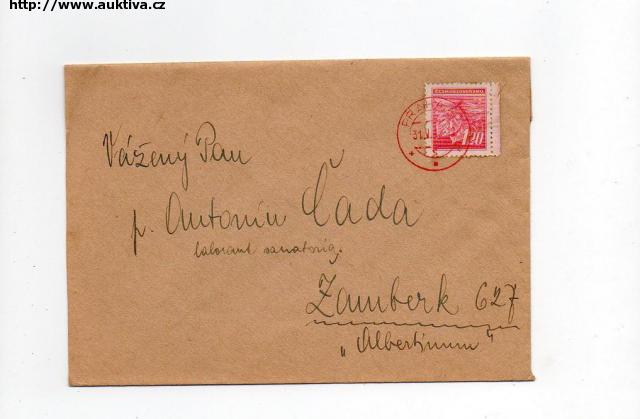 http://www.auktiva.cz
ČESKOSLOVENSKO
1.20
31.V
Vážený Pan
p. Antonín Čada
laborant sanatoria.
Žamberk 627
„Albertinum"